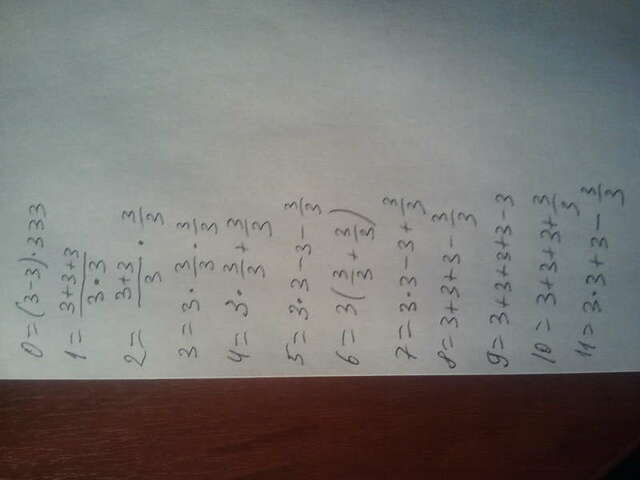 0=(3-3)·333
1=(3+3+3)/(3·3)
2=(3+3)/3·3/3
3=3·3/3·3/3
4=3·3/3+3/3
5=3·3-3-3/3
6=3(3/3+3/3)
7=3·3-3+3/3
8=3+3+3-3/3
9=3+3+3+3-3
10=3+3+3+3/3
11=3·3+3-3/3